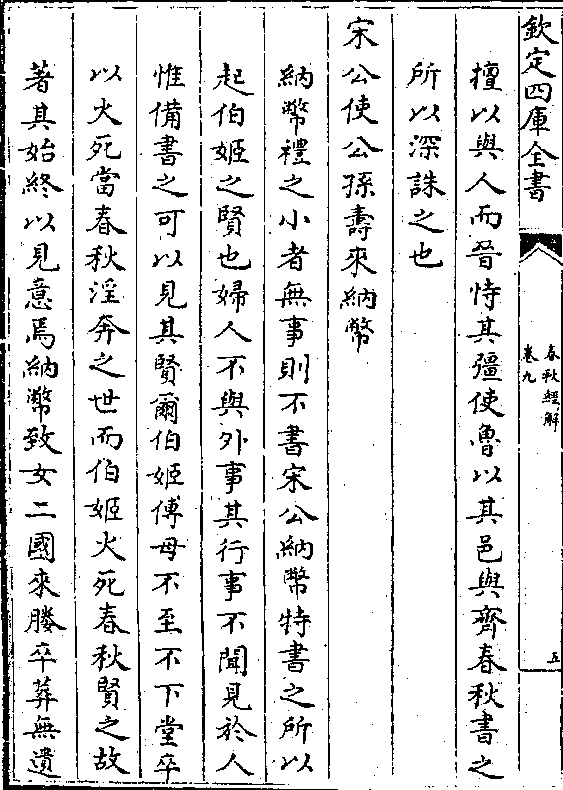 欽定四庫全書
春秋經解
卷九
五
擅以與人而晉恃其彊使魯以其邑與齊春秋書之
所以深誅之也
宋公使公孫壽來納幣
納幣禮之小者無事則不書宋公納幣特書之所以
起伯姬之賢也婦人不與外事其行事不聞見於人
惟備書之可以見其賢爾伯姬傅母不至不下堂卒
以火死當春秋淫奔之世而伯姬火死春秋賢之故
著其始終以見意焉納幣致女二國來媵卒葬無遺